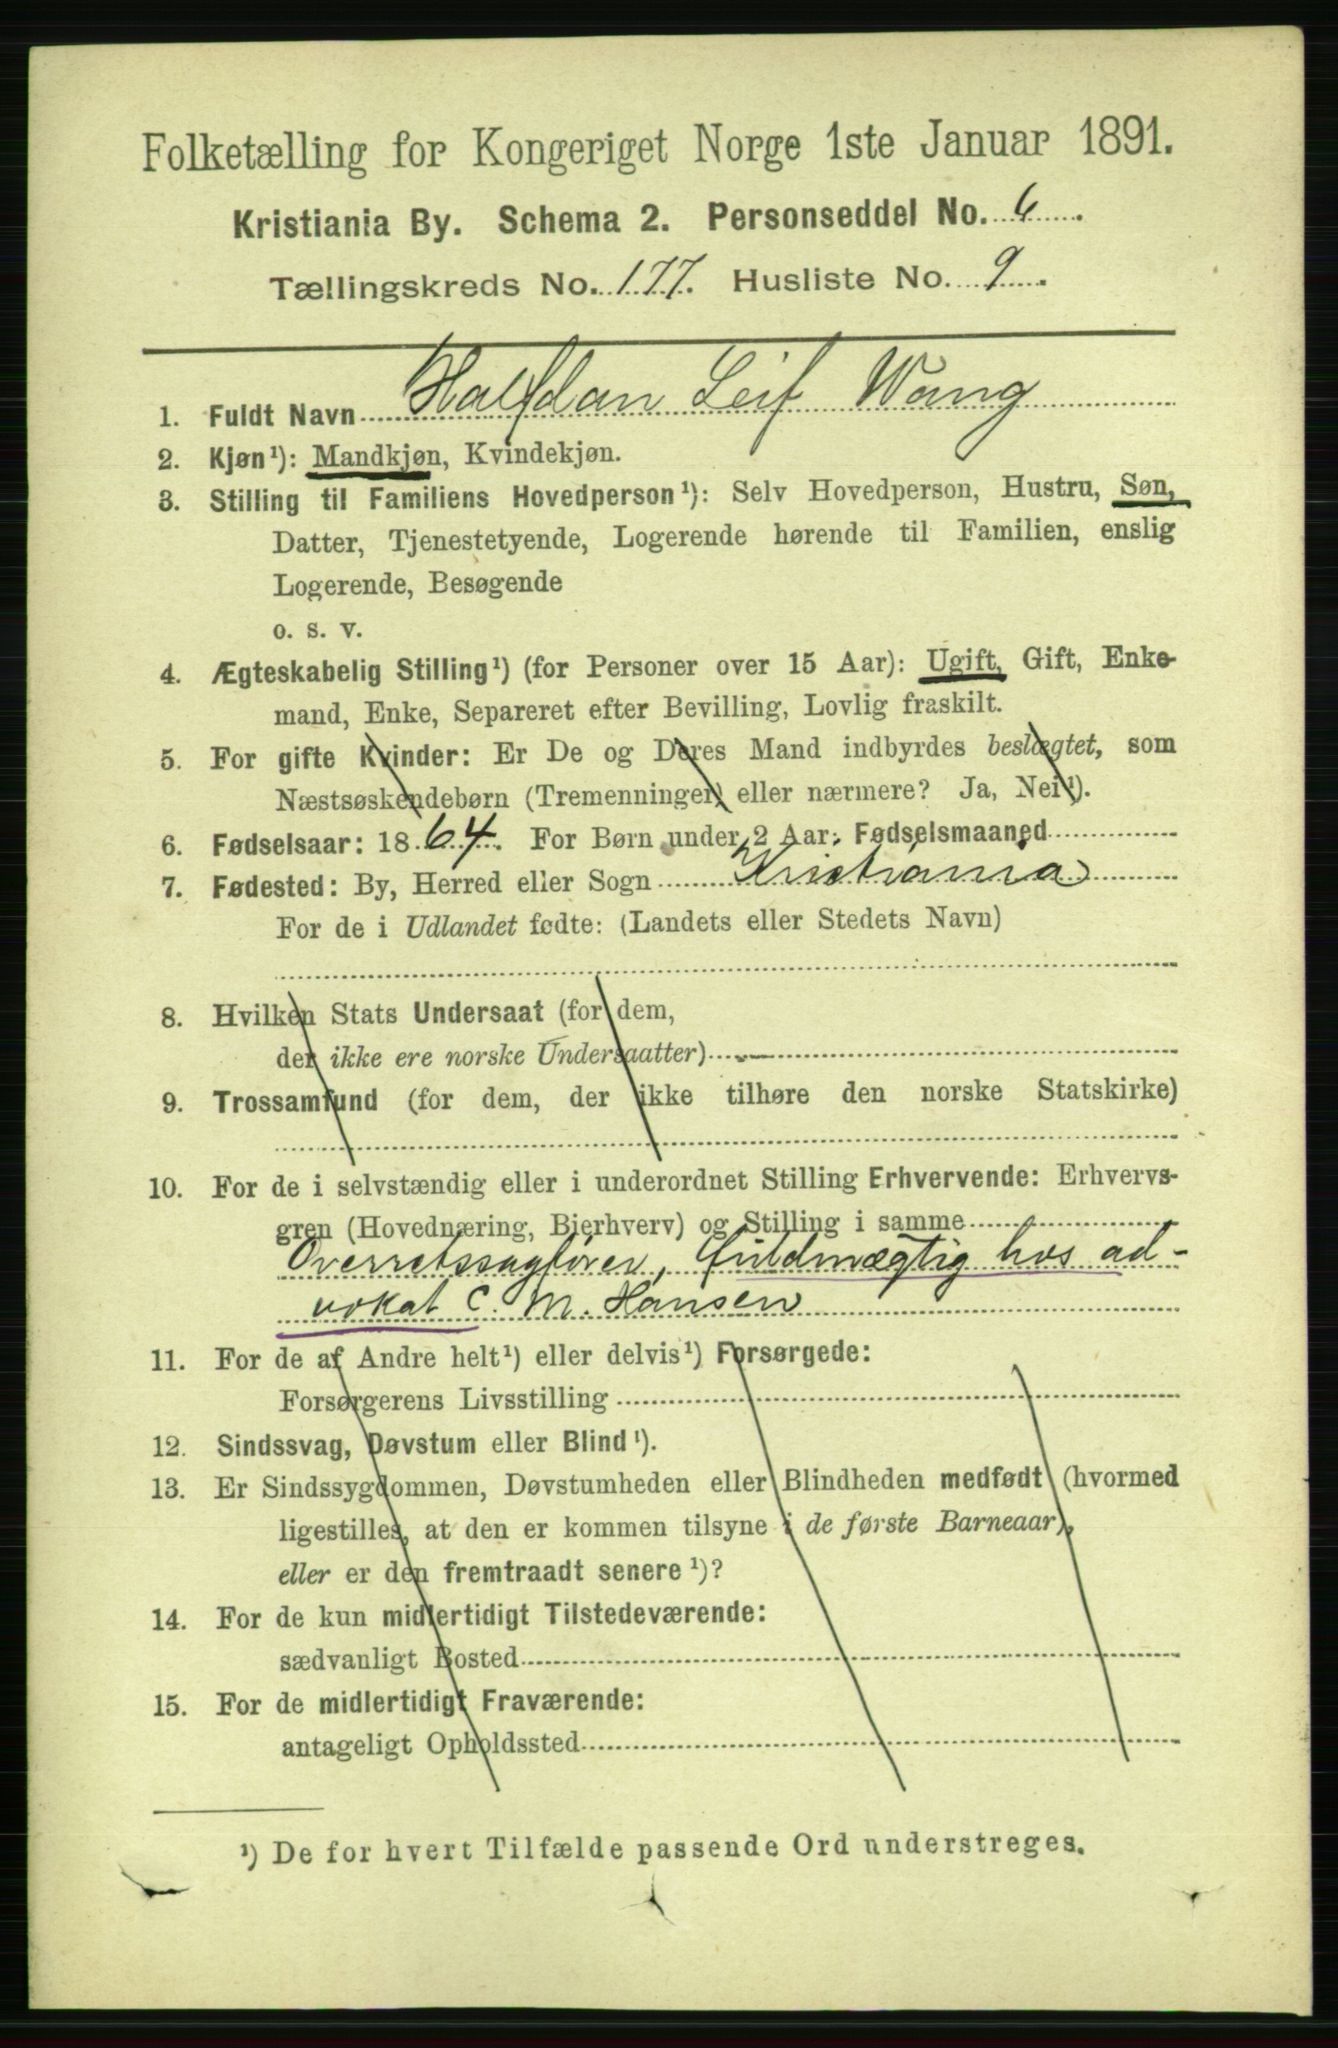 Folketælling for Kongeriget Norge 1ste Januar 1891.
Kristiania By. Schema 2. Personseddel No. 6.
Tællingskreds No. 177. Husliste No. 9.
1. Fuldt Navn Halfdan Leif Wang
2. Kjøn¹): Mandkjøn, Kvindekjøn.
3. Stilling til Familiens Hovedperson¹): Selv Hovedperson, Hustru, Søn,
Datter, Tjenestetyende, Logerende hørende til Familien, enslig
Logerende, Besøgende
o. s. v.
4. Ægteskabelig Stilling¹) (for Personer over 15 Aar): Ugift, Gift, Enke-
mand, Enke, Separeret efter Bevilling, Lovlig fraskilt.
5. For gifte Kvinder: Er De og Deres Mand indbyrdes beslægtet, som
Næstsøskendebørn (Tremenninger) eller nærmere? Ja, Nei¹).
6. Fødselsaar: 1864. For Børn under 2 Aar: Fødselsmaaned
7. Fødested: By, Herred eller Sogn Kristiania
For de i Udlandet fødte: (Landets eller Stedets Navn)
8. Hvilken Stats Undersaat (for dem,
der ikke ere norske Undersaatter)
9. Trossamfund (for dem, der ikke tilhøre den norske Statskirke)
10. For de i selvstændig eller i underordnet Stilling Erhvervende: Erhvervs-
gren (Hovednæring, Bierhverv) og Stilling i samme
Overretssagfører, fuldmægtig hos ad-
vokat C. M. Hansen
11. For de af Andre helt¹) eller delvis¹) Forsørgede:
Forsørgerens Livsstilling
12. Sindssvag, Døvstum eller Blind¹).
13. Er Sindssygdommen, Døvstumheden eller Blindheden medfødt (hvormed
ligestilles, at den er kommen tilsyne i de første Barneaar),
eller er den fremtraadt senere¹)?
14. For de kun midlertidigt Tilstedeværende:
sædvanligt Bosted
15. For de midlertidigt Fraværende:
antageligt Opholdssted
¹) De for hvert Tilfælde passende Ord understreges.